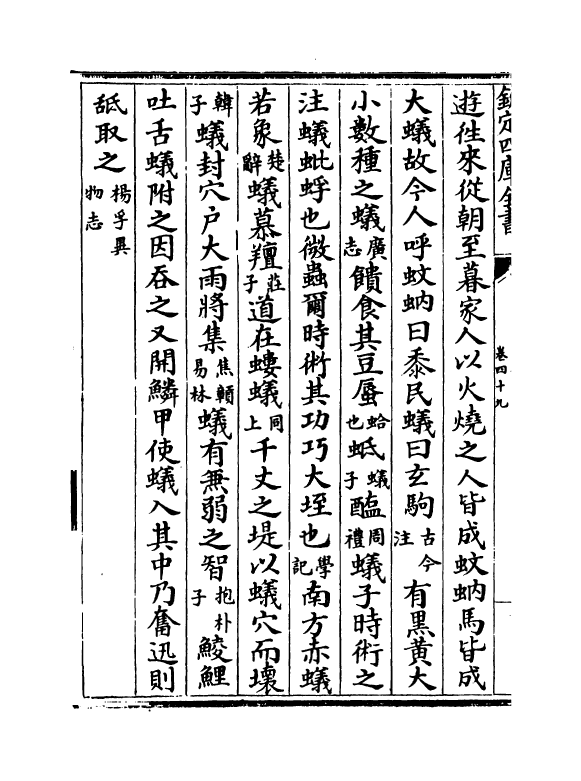 欽定四庫全書
卷四十九
遊徃來從朝至暮家人以火燒之人皆成蚊蚋馬皆成
大蟻故今人呼蚊蚋曰黍民蟻曰玄駒古今注有黒黄大
小數種之蟻廣志饋食其豆蜃蛤也蚳蟻子醢周禮蟻子時術之
注蟻蚍蜉也微蟲爾時術其功巧大垤也學記南方赤蟻
若象楚辭蟻慕羶莊子道在螻蟻同上千丈之堤以蟻穴而壊
韓子蟻封穴户大雨將集焦贑易林蟻有兼弱之智抱朴子鯪鯉
吐舌蟻附之因吞之又開鱗甲使蟻入其中乃奮迅則
舐取之楊孚異物志